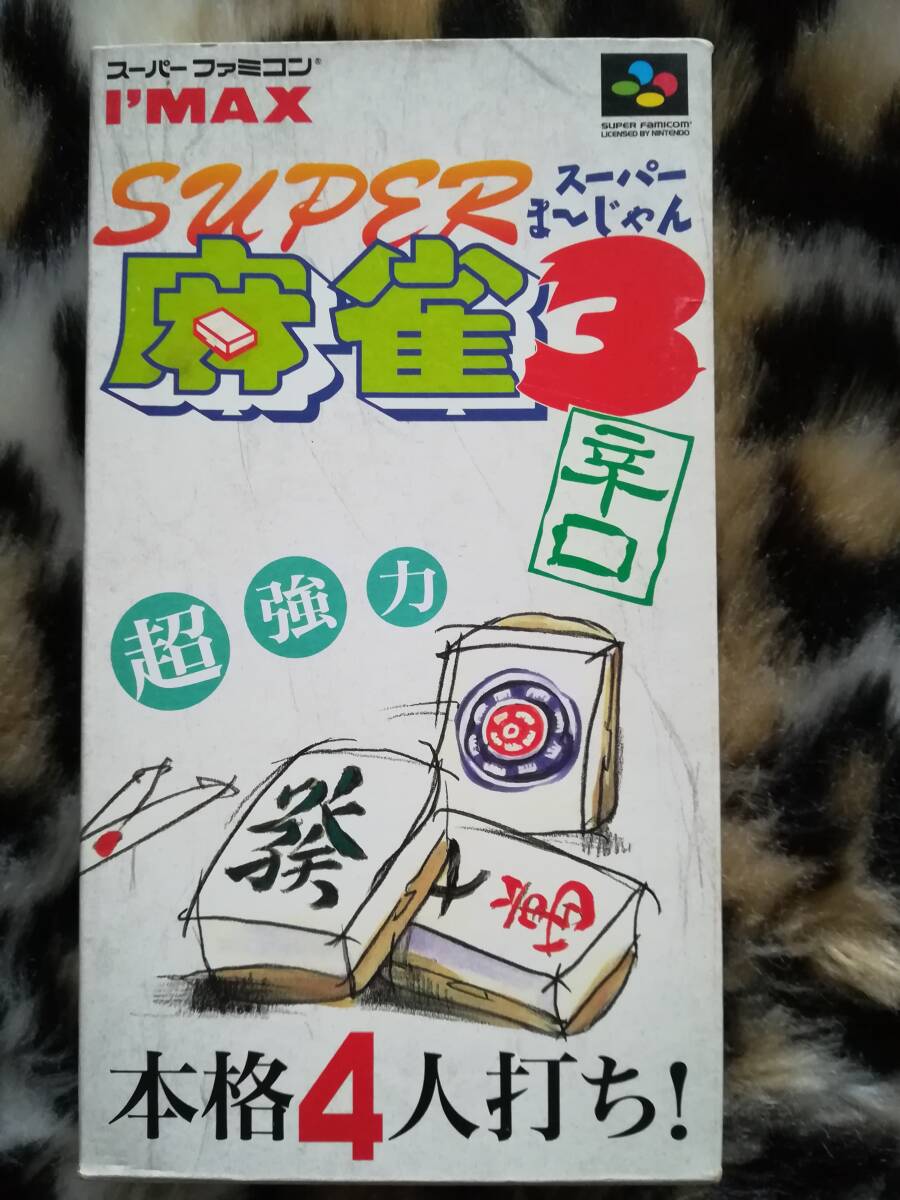 スーパーファミコン®
I'MAX
SUPER FAMICOM®
LICENSED BY NINTENDO
SUPER
スーパー
ま〜じゃん
麻雀3
辛口
超強力
發
萬
本格4人打ち!